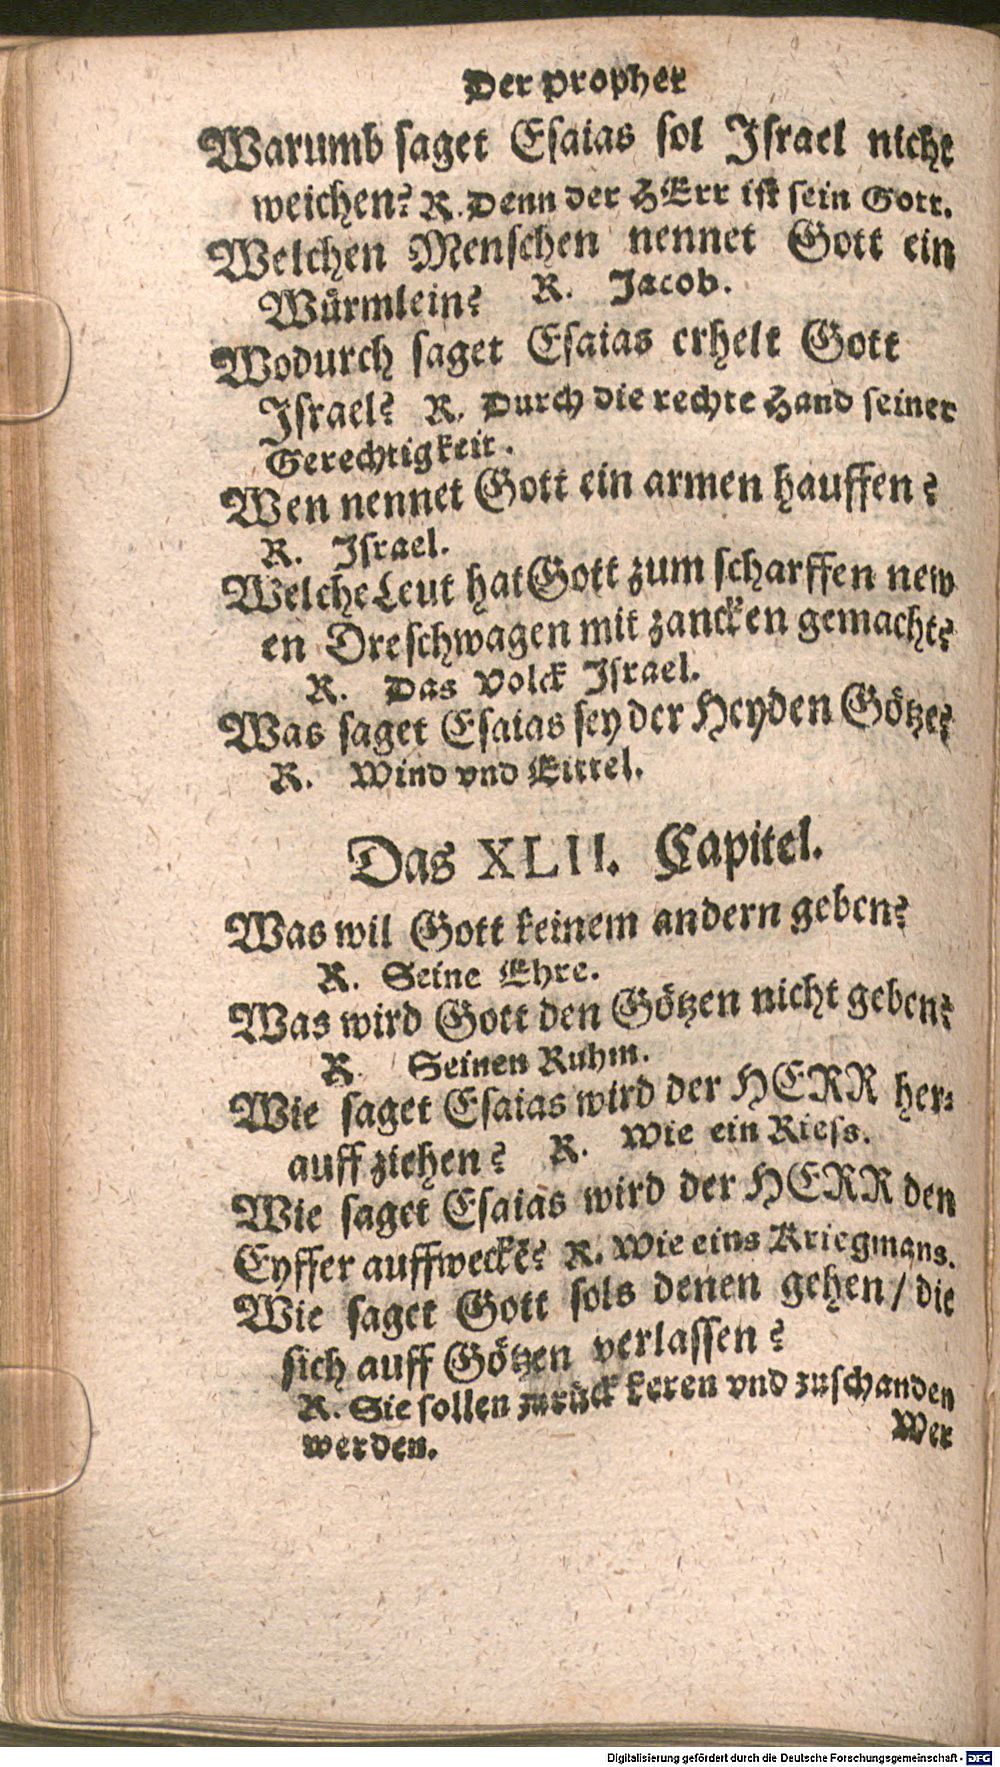 Der Prophet
Warumb saget Esaias sol Israel nicht
weichen? R. Denn der HErr ist sein Gott.
Welchen Menschen nennet Gott ein
Würmlein? R. Jacob.
Wodurch saget Esaias erhelt Gott
Israel? R. Durch die rechte Hand seiner
Gerechtigkeit.
Wen nennet Gott ein armen hauffen?
R. Israel.
Welche Leut hat Gott zum scharffen new
en Dreschwagen mit zancken gemacht?
R. Das Volck Israel.
Was saget Esaias sey der Heyden Götze?
R. Wind vnd Eittel.
Das XLII. Capitel.
Was wil Gott keinem andern geben?
R. Seine Ehre.
Was wird Gott den Götzen nicht geben?
R. Seinen Ruhm.
Wie saget Esaias wird der HERR her-
auff ziehen? R. Wie ein Riess.
Wie saget Esaias wird der HERR den
Eyffer auffweckē? R. Wie eins Kriegmans.
Wie saget Gott sols denen gehen / die
sich auff Götzen verlassen?
R. Sie sollen zurück keren vnd zuschanden
werden.
Wer
Digitalisierung gefördert durch die Deutsche Forschungsgemeinschaft - DFG